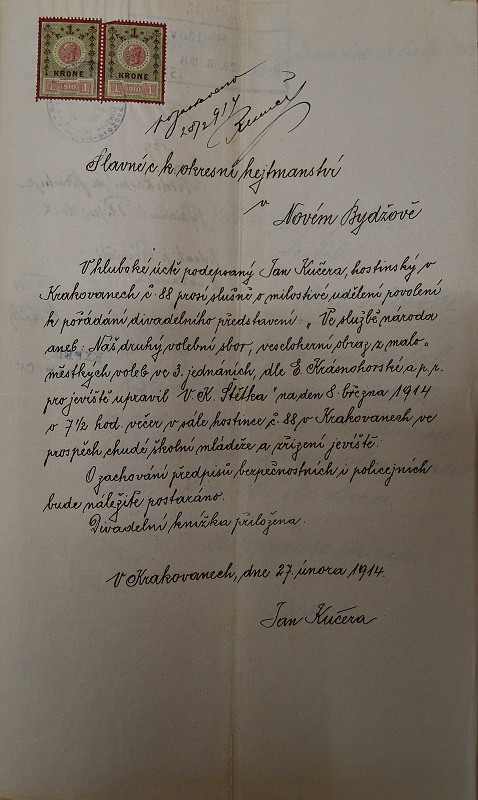 1 1
KRONE KRONE
1 1910 1 1 1910 1
28/2 914
Slavné c k okresní hejtmanství
v
Novém Bydžově
V hluboké úctě podepsaný Jan Kučera, hostinský v
Krakovanech č 88 prosí slušně o milostivé udělení povolení
k pořádání divadelního představení: „Ve službě národa
aneb: Náš druhý volební sbor, veseloherní obraz z malo„
městkých voleb ve 3. jednáních, dle E. Krásnohorské a p. r.
pro jeviště upravil V. K. Štětka" na den 8. března 1914
o 7 1/2 hod. večer v sále hostince č 88 v Krakovanech ve
prospěch chudé školní mládeže a zřízení jeviště.
O zachování předpisů bezpečnostních i policejních
bude náležitě postaráno.
Divadelní knížka přiložena.
V Krakovanech, dne 27. února 1914.
Jan Kučera